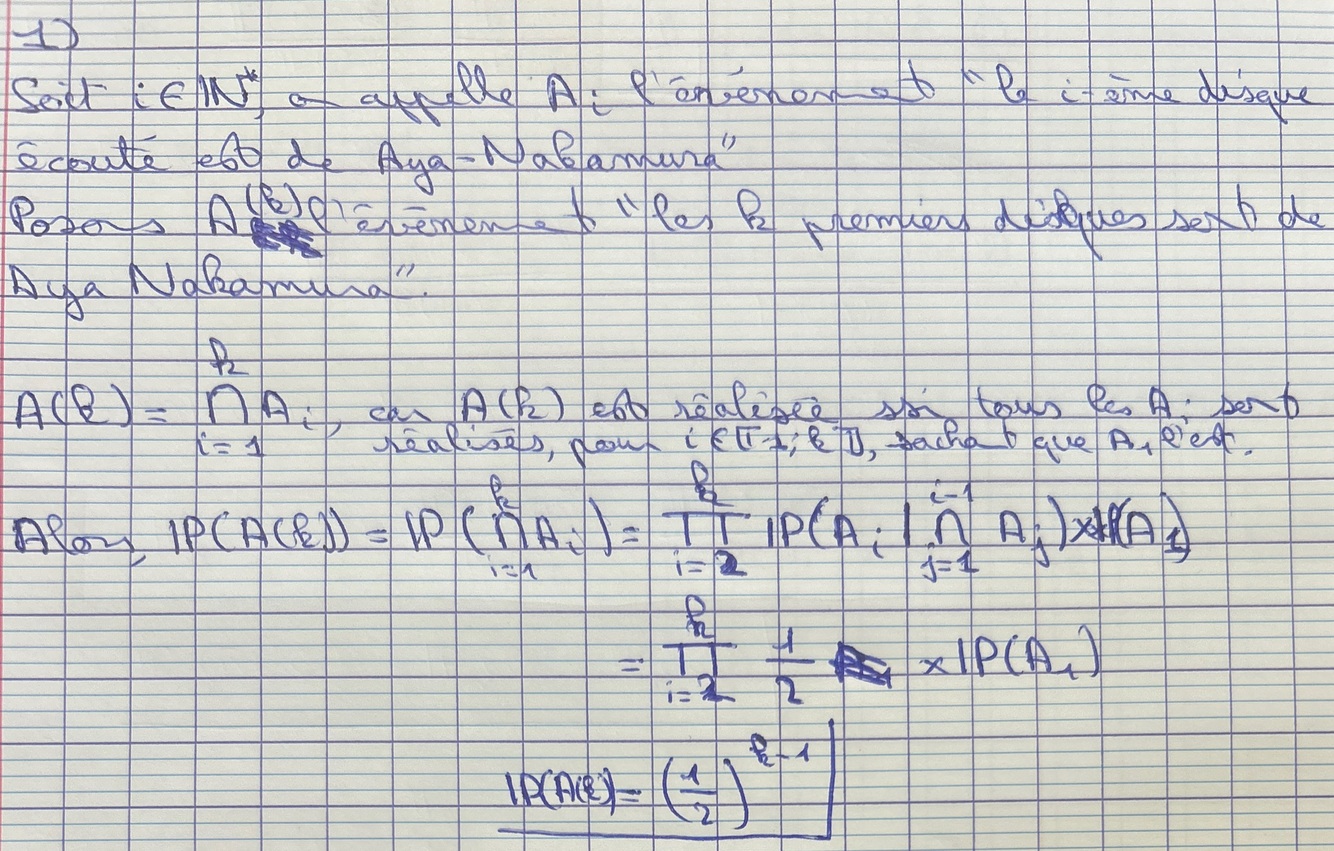 1)
Soit i ∈ ℕ*, on appelle A_i l'évènement "le i-ème disque
écouté est de Aya-Nakamura"
Posons A(k) l'évènement "les k premiers disques sont de
Aya Nakamura".
A(k) = ⋂_{i=1}^{k} A_i, car A(k) est réalisée ssi tous les A_i sont
réalisés, pour i ∈ ⟦1; k⟧, sachant que A_1 l'est.
Alors, ℙ(A(k)) = ℙ(⋂_{i=1}^{k} A_i) = ∏_{i=2}^{k} ℙ(A_i | ⋂_{j=1}^{i-1} A_j) × ℙ(A_1)
= ∏_{i=2}^{k} 1/2 × ℙ(A_1)
ℙ(A(k)) = (1/2)^{k-1}